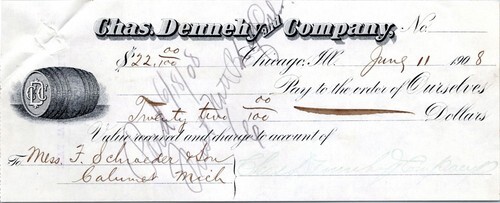 Chas. Dennehy and Company, No.
$22 00/100 Chicago, Ill. June 11 1908
Pay to the order of Ourselves
Twenty two 00/100 Dollars
Value received and charge to account of
To Mess. F. Schroeder & Son
Calumet Mich